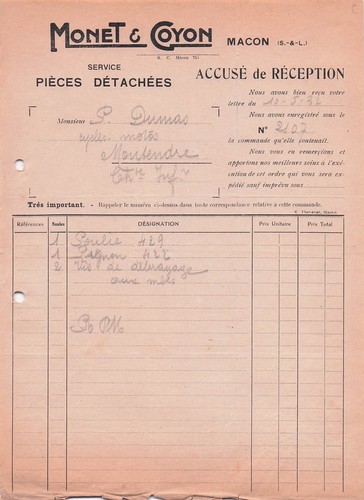 MONET & GOYON
MACON (S.-&-L.)
R. C. Mâcon 765
SERVICE
PIÈCES DÉTACHÉES
ACCUSÉ de RÉCEPTION
Nous avons bien reçu votre
lettre du 10-5-32
Monsieur P. Dumas
Nous avons enregistré sous le
cycles motos
N° 2102
Montendre
la commande qu'elle contenait.
Chte Infre
Nous vous en remercions et
apportons nos meilleurs soins à l'exé-
cution de cet ordre qui vous sera
expédié sauf imprévu sous
Très important. - Rappeler le numéro ci-dessus dans toute correspondance relative à cette commande.
Références Nombre DÉSIGNATION Prix Unitaire Prix Total
1 Poulie 429
1 Pignon 422
2 Vis de débrayage
aux mets